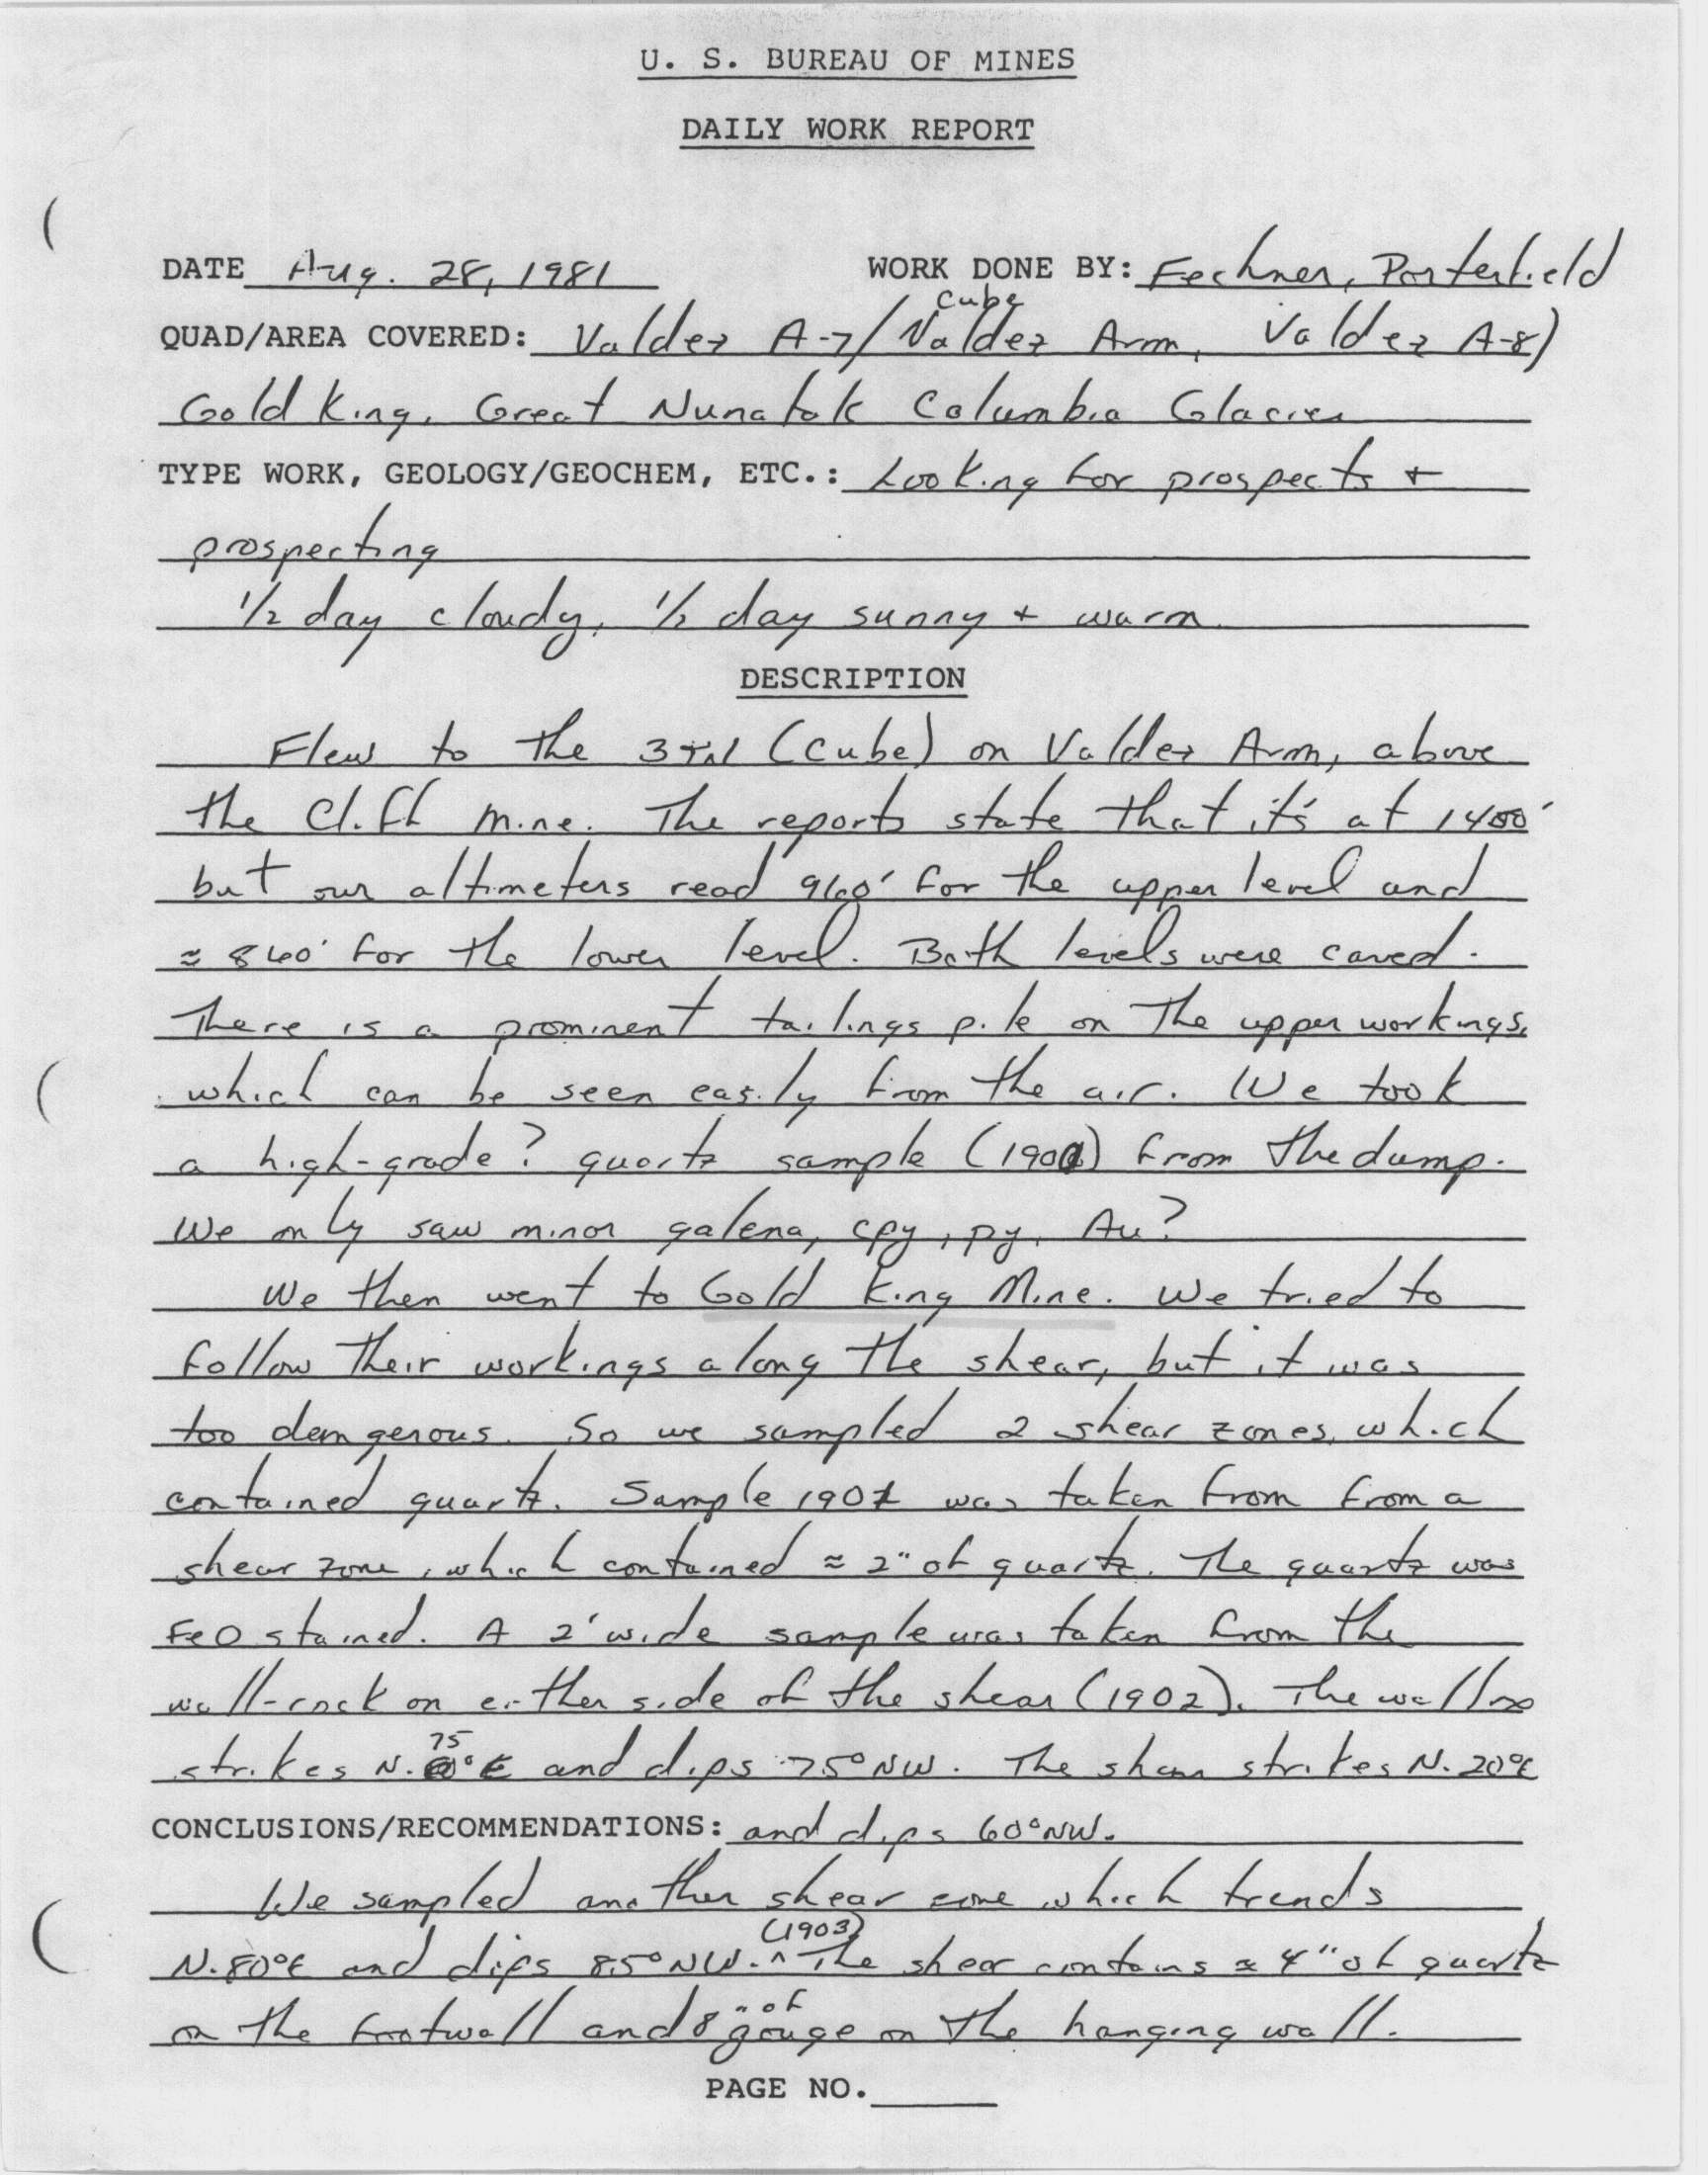 U. S. BUREAU OF MINES
DAILY WORK REPORT
DATE Aug. 28, 1981 WORK DONE BY: Fechner, Porterfield
Cube
QUAD/AREA COVERED: Valdez A-7/Valdez Arm, Valdez A-8)
Gold King, Great Nunatak Columbia Glacier
TYPE WORK, GEOLOGY/GEOCHEM, ETC.: Looking for prospects +
prospecting
1/2 day cloudy, 1/2 day sunny + warm.
DESCRIPTION
Flew to the (Cube) on Valdez Arm, above
the Cliff Mine. The reports state that it's at 1400'
but our altimeters read 960' for the upper level and
≈ 860' for the lower level. Both levels were caved.
There is a prominent tailings pile on the upper workings,
which can be seen easily from the air. We took
a high-grade? quartz sample (1900) from the dump.
We only saw minor galena, cpy, py, Au?
We then went to Gold King Mine. We tried to
follow their workings along the shear, but it was
too dangerous. So we sampled 2 shear zones, which
contained quartz. Sample 1901 was taken from from a
shear zone, which contained ≈ 2" of quartz. The quartz was
FeO stained. A 2' wide sample was taken from the
wall-rock on either side of the shear (1902). The wallrx
75
strikes N. °E and dips 75° NW. The shear strikes N. 20°E
CONCLUSIONS/RECOMMENDATIONS: and dips 60°NW.
We sampled another shear zone which trends
(1903)
N. 80°E and dips 85° NW. ^ The shear contains ≈ 4" of quartz
" of
on the footwall and 8 gouge on the hanging wall.
PAGE NO.